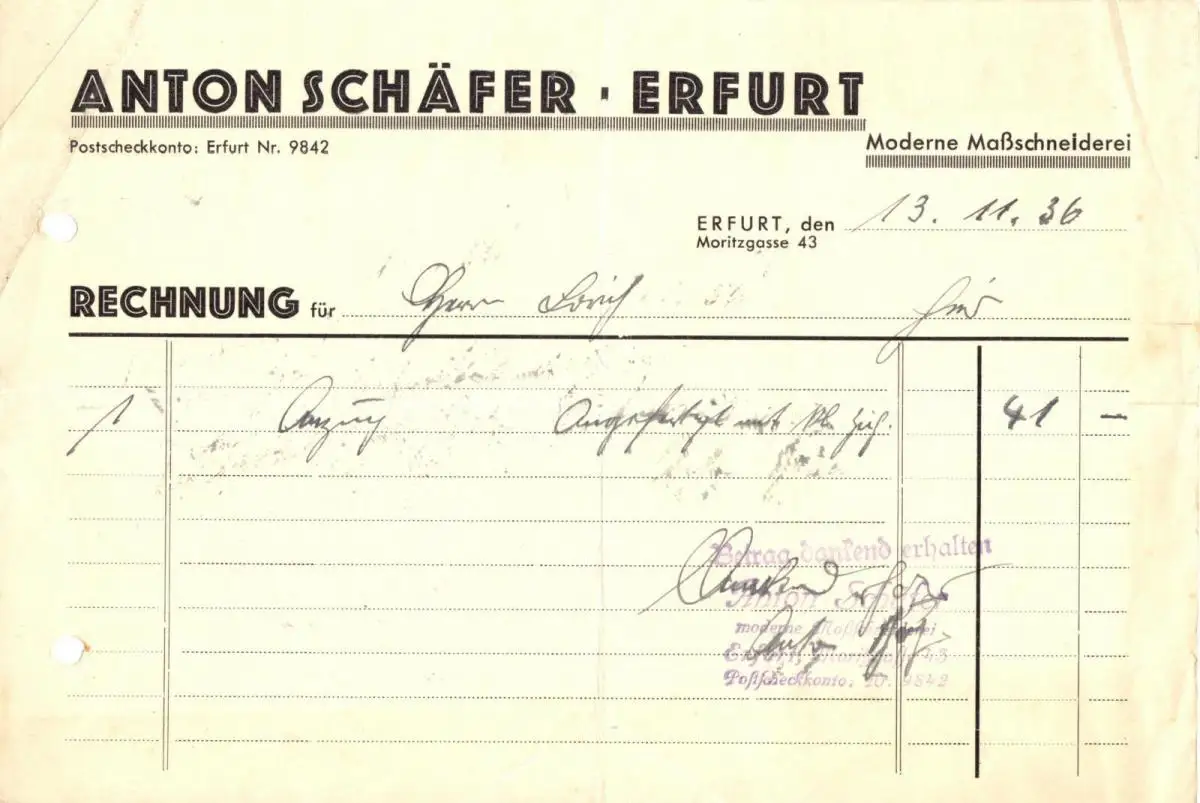 ANTON SCHÄFER · ERFURT
Postscheckkonto: Erfurt Nr. 9842
Moderne Maßschneiderei
ERFURT, den 13. 11. 36
Moritzgasse 43
RECHNUNG für Herrn hier
1 Anzug Angefertigt mit 41 —
Betrag dankend erhalten
Anton Schäfer
moderne Maßschneiderei
Erfurt, Moritzgasse 43
Postscheckkonto: 9842